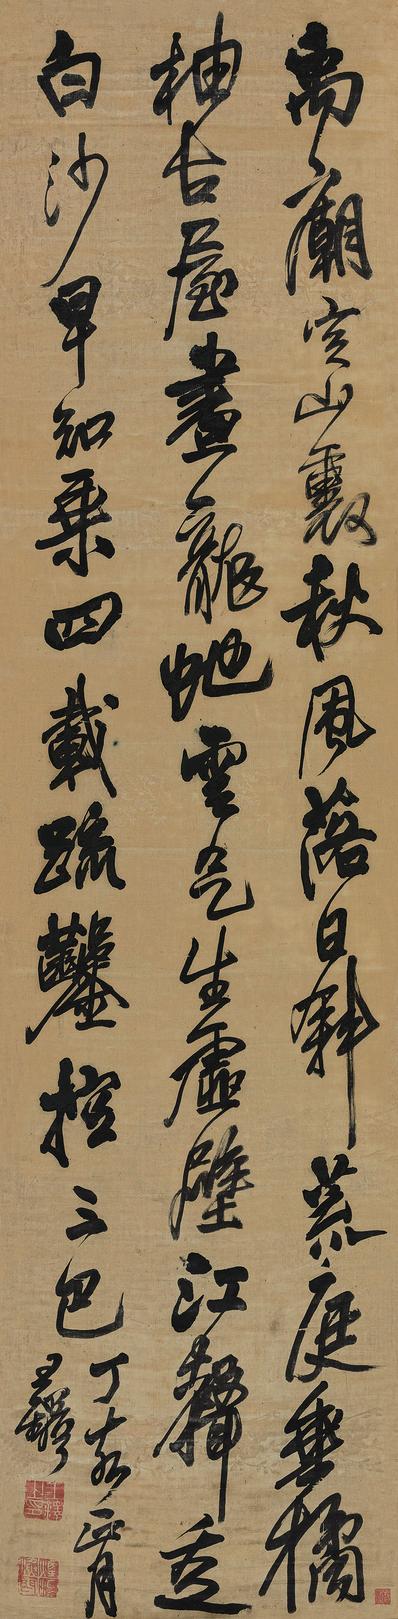 禹廟空山裏秋風落日斜荒庭垂橘
柚古屋畫龍虵雲气生虛壁江聲走
白沙早知乘四載疏鑿控三巴
丁亥正月
王鐸